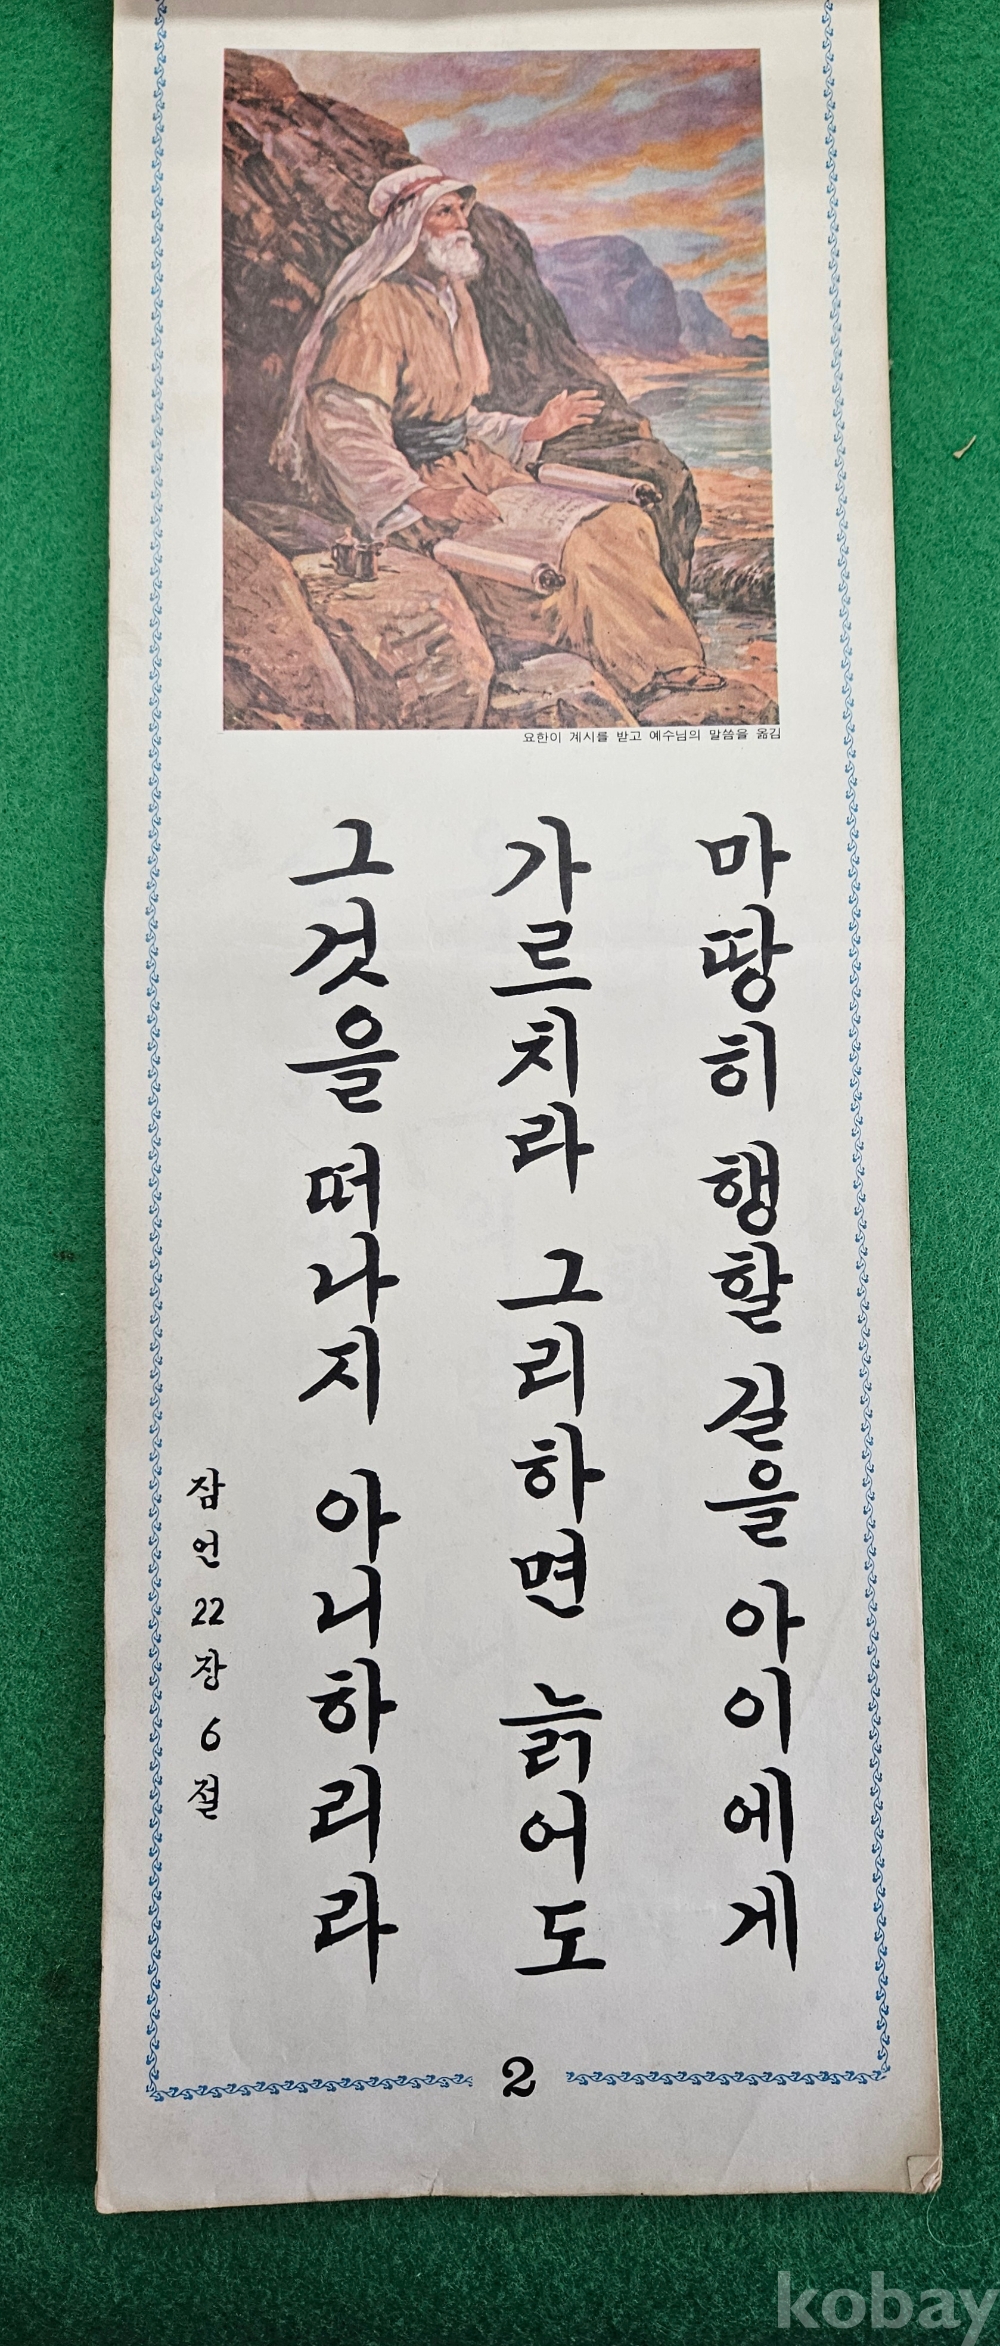 요한이 계시를 받고 예수님의 말씀을 옮김
마땅히 행할 길을 아이에게
가르치라 그리하면 늙어도
그것을 떠나지 아니하리라
잠언 22장 6절
2
kobay